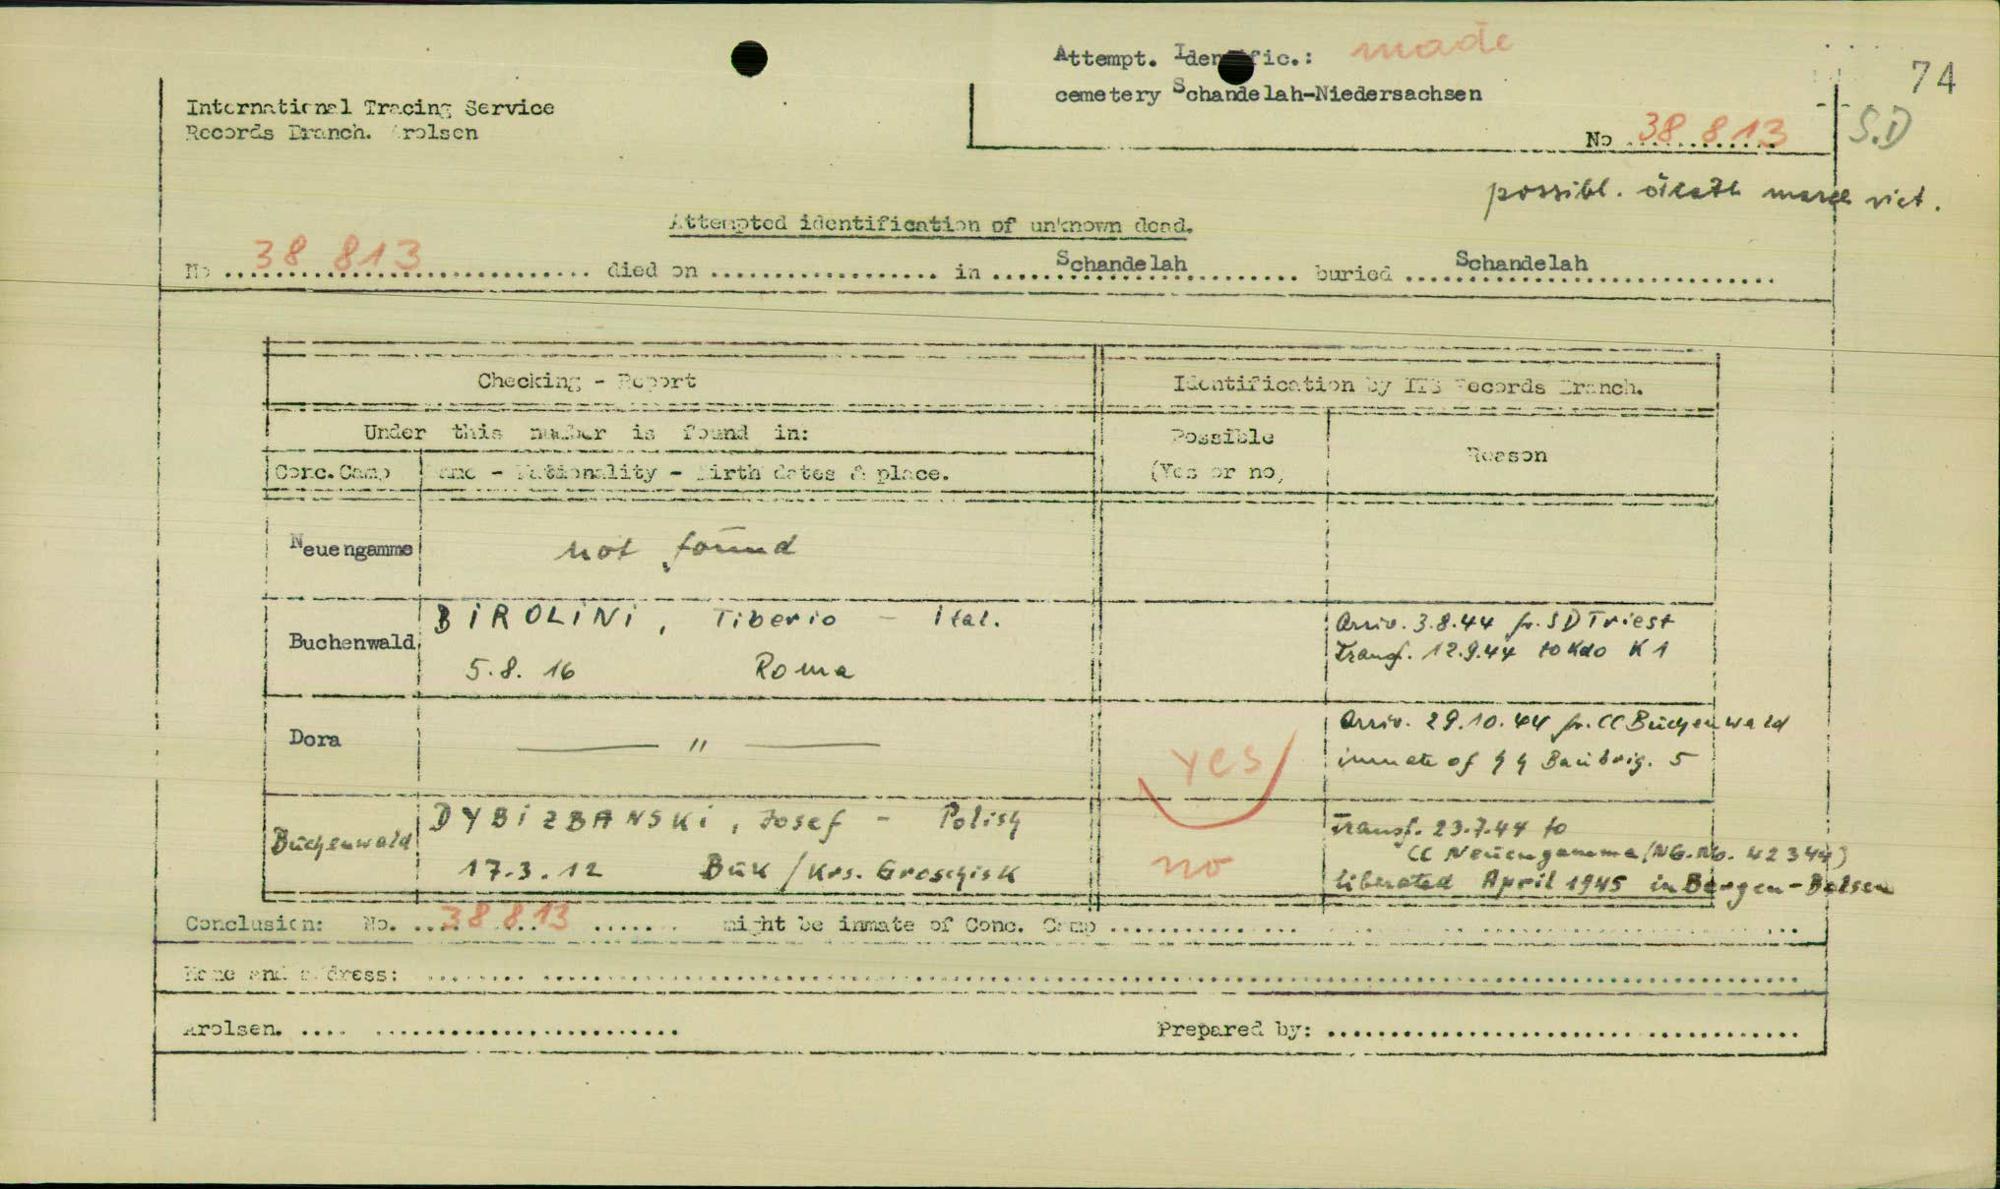 Attempt. Identific.: made
74
cemetery Schandelah-Niedersachsen
International Tracing Service
Records Branch. Arolsen
No 38 813
S.D
possibl. death march vict.
Attempted identification of unknown dead.
No 38 813 died on in Schandelah buried Schandelah
Checking - Report
Identification by ITS Records Branch.
Under this number is found in:
Possible
(Yes or no)
Reason
Conc.Camp
Name - Nationality - Birth dates & place.
Neuengamme
not found
Buchenwald
BIROLINI, Tiberio - Ital.
5.8. 16 Roma
Arriv. 3.8.44 fr. SD Triest
Transf. 12.9.44 to Kdo K 1
Dora
— " —
yes
Arriv. 29.10.44 fr. CC Buchenwald
inmate of SS Baubrig. 5
Buchenwald
DYBIZBANSKI, Josef - Polish
17.3.12 Buk / Krs. Groschisk
no
Transf. 23.7.44 to
CC Neuengamme (NG.No. 42344)
liberated April 1945 in Bergen-Belsen
Conclusion: No. 38 813 might be inmate of Conc. Camp
Name and address:
Arolsen.
Prepared by: